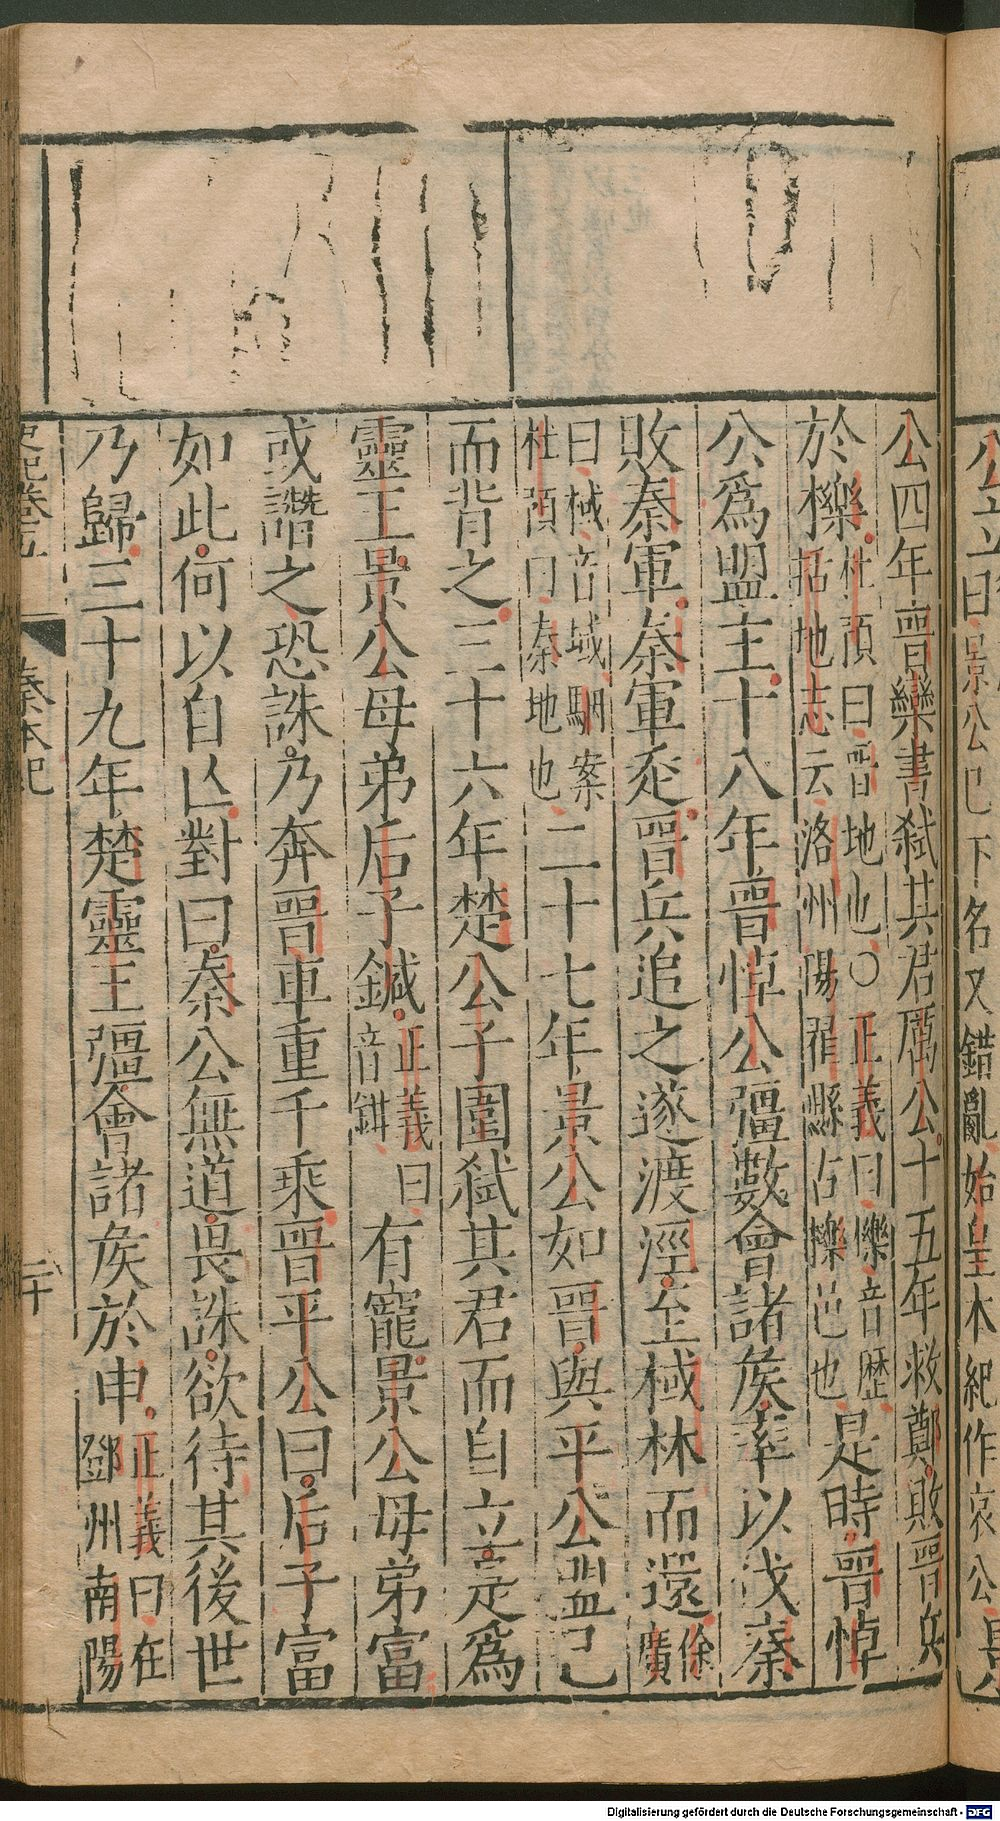 公四年晉欒書弑其君厲公十五年救鄭敗晉兵
於櫟杜預曰晉地也〇正義曰櫟音歷括地志云洛州陽翟縣古櫟邑也是時晉悼
公爲盟主十八年晉悼公彊數會諸矦率以伐秦
敗秦軍秦軍走晉兵追之遂渡涇至棫林而還徐廣
曰棫音域駰案杜預曰秦地也二十七年景公如晉與平公盟已
而背之三十六年楚公子圍弑其君而自立是爲
靈王景公母弟后子鍼正義曰音鉗有寵景公母弟富
或譖之恐誅乃奔晉車重千乘晉平公曰后子富
如此何以自亾對曰秦公無道畏誅欲待其後世
乃歸三十九年楚靈王彊會諸矦於申正義曰在鄧州南陽
史記卷五
秦本紀
二十
公立曰景公已下名又錯亂始皇本紀作哀公
Digitalisierung gefördert durch die Deutsche Forschungsgemeinschaft - DFG